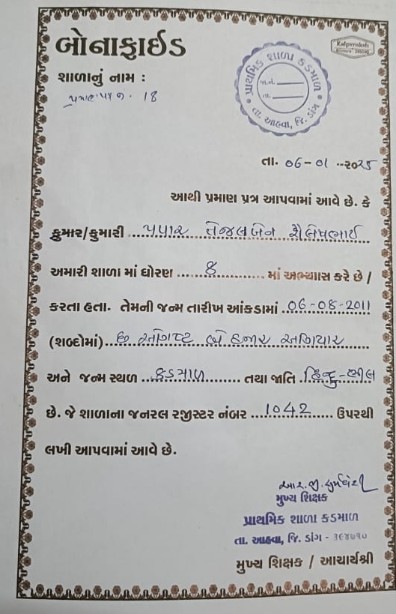 બોનાફાઈડ
Kalpavruksh
શાળાનું નામ :
પ્રમાણપત્ર નં. 18
પ્રાથમિક શાળા કડમાળ
તા. આહવા, જિ. ડાંગ
તા. 06-01-2025
આથી પ્રમાણ પત્ર આપવામાં આવે છે. કે
કુમાર/કુમારી પવાર તેજલબેન શૈલેષભાઈ
અમારી શાળા માં ધોરણ 8 માં અભ્યાસ કરે છે /
કરતા હતા. તેમની જન્મ તારીખ આંકડામાં 06-08-2011
(શબ્દોમાં) છ ઓગષ્ટ બે હજાર અગિયાર
અને જન્મ સ્થળ કડમાળ તથા જાતિ હિન્દુ-ભીલ
છે. જે શાળાના જનરલ રજીસ્ટર નંબર 1042 ઉપરથી
લખી આપવામાં આવે છે.
મુખ્ય શિક્ષક
પ્રાથમિક શાળા કડમાળ
તા. આહવા, જિ. ડાંગ - ૩૯૪૭૧૦
મુખ્ય શિક્ષક / આચાર્યશ્રી